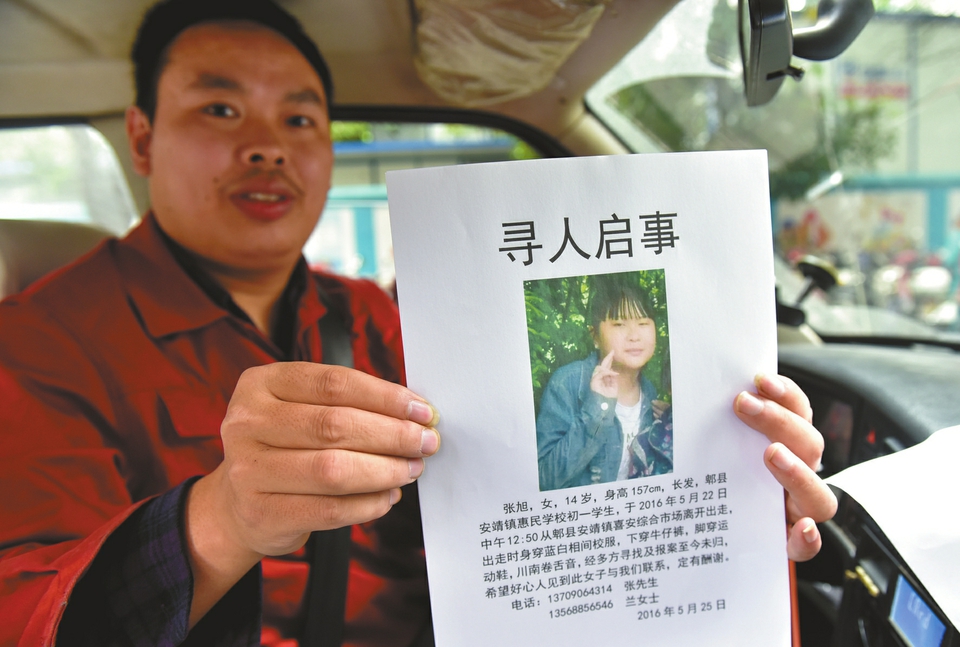 寻人启事
张旭，女，14岁，身高157cm，长发，郫县
安靖镇惠民学校初一学生，于2016年5月22日
中午12:50从郫县安靖镇喜安综合市场离开出走，
出走时身穿蓝白相间校服，下穿牛仔裤，脚穿运
动鞋，川南卷舌音，经多方寻找及报案至今未归，
希望好心人见到此女子与我们联系，定有酬谢。
电话：13709064314 张先生
13568856546 兰女士
2016年5月25日